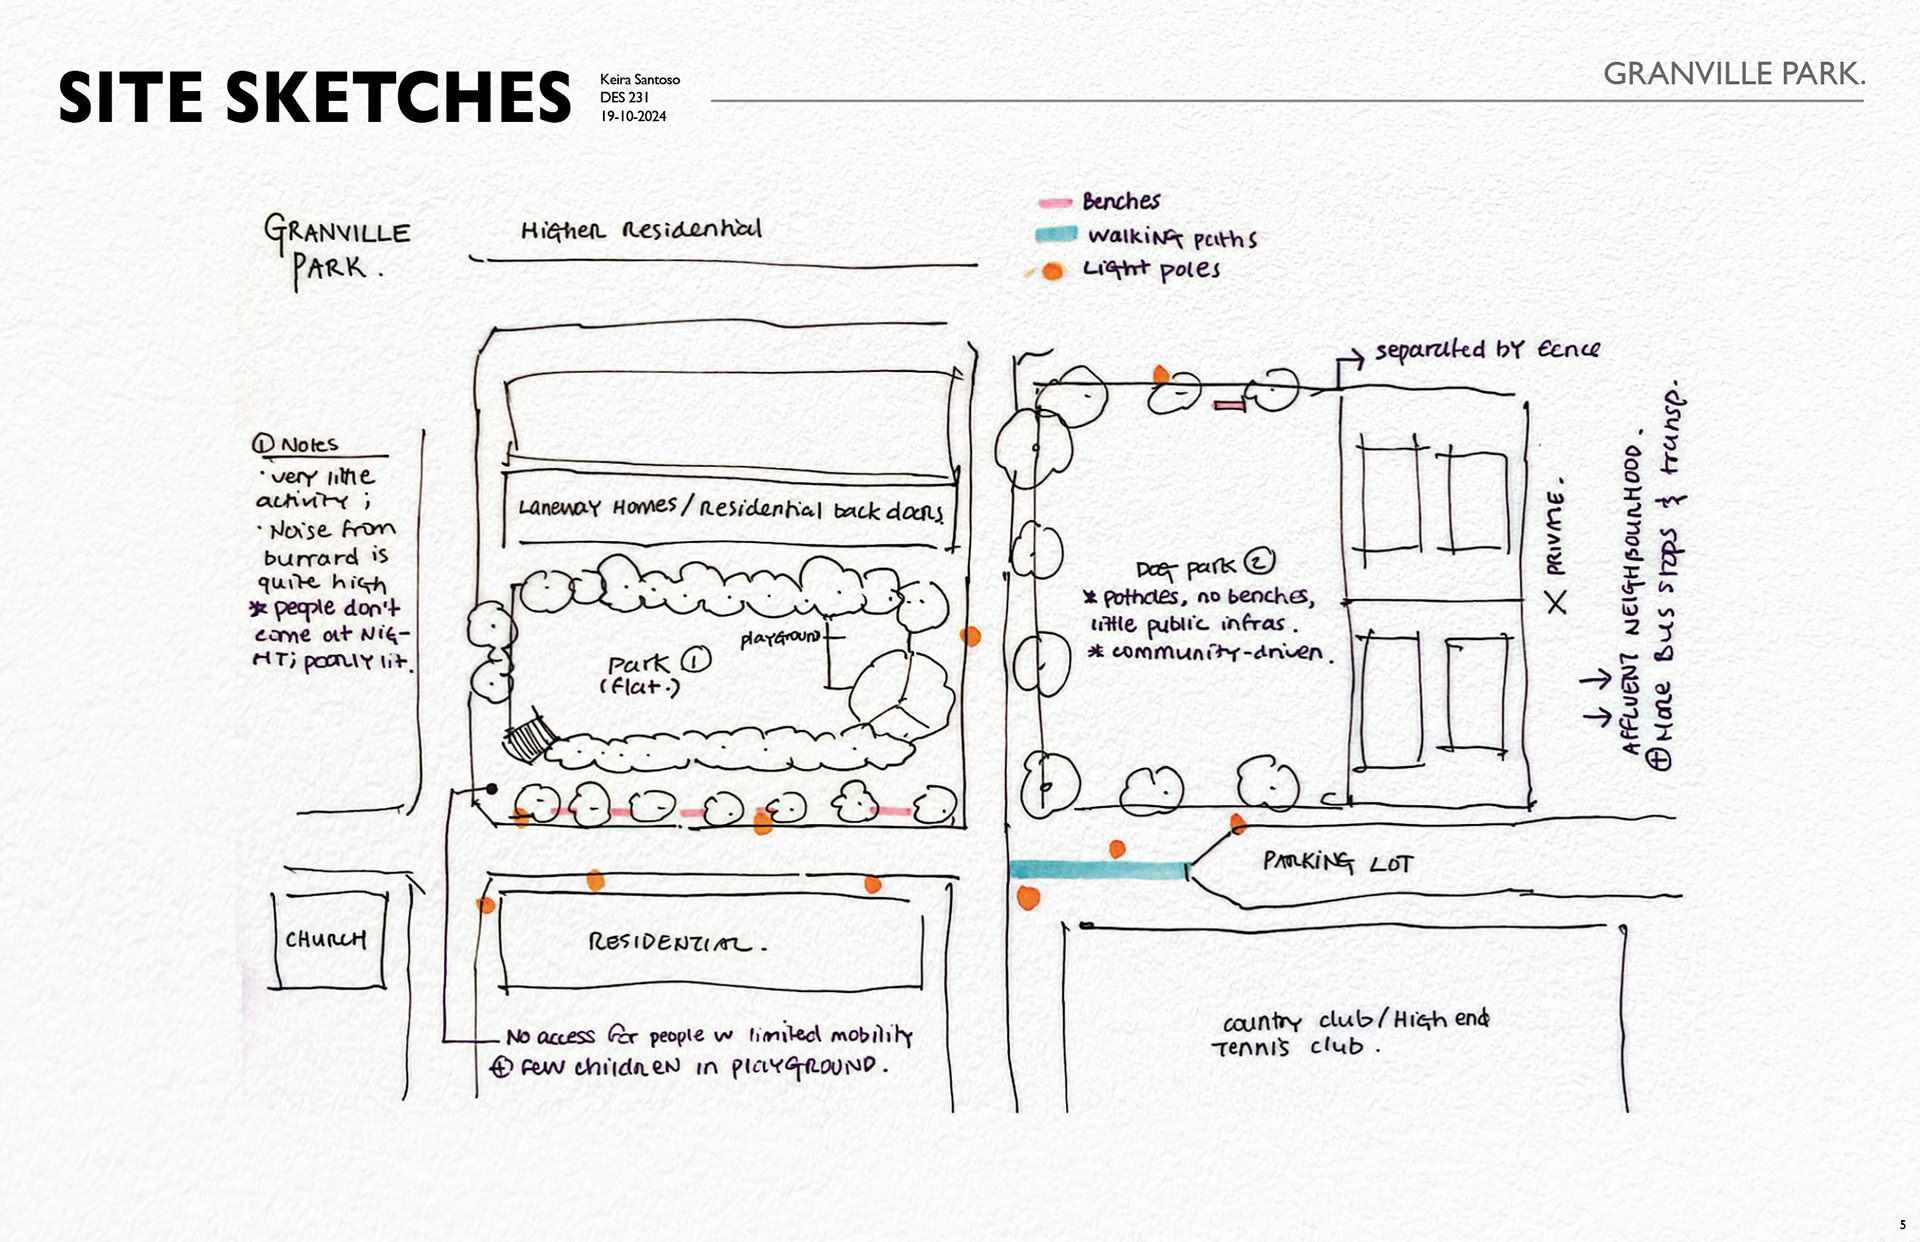 SITE SKETCHES
Keira Santoso
DES 231
19-10-2024
GRANVILLE PARK.
GRANVILLE
PARK.
Higher Residential
Benches
walking paths
Light poles
separated by Fence
① Notes
· very little
activity ;
· Noise from
burrard is
quite high
* people don't
come at NIG-
HT; poorly lit.
Laneway Homes/Residential back doors.
playground
Park ①
(flat.)
Dog park ②
* potholes, no benches,
little public infras.
* community-driven.
X PRIVATE.
→ → AFFLUENT NEIGHBOURHOOD.
⊕ More Bus stops & transp.
PARKING LOT
CHURCH
RESIDENTIAL.
No access for people w limited mobility
⊕ few children in PLAYGROUND.
country club/High end
Tennis club.
5